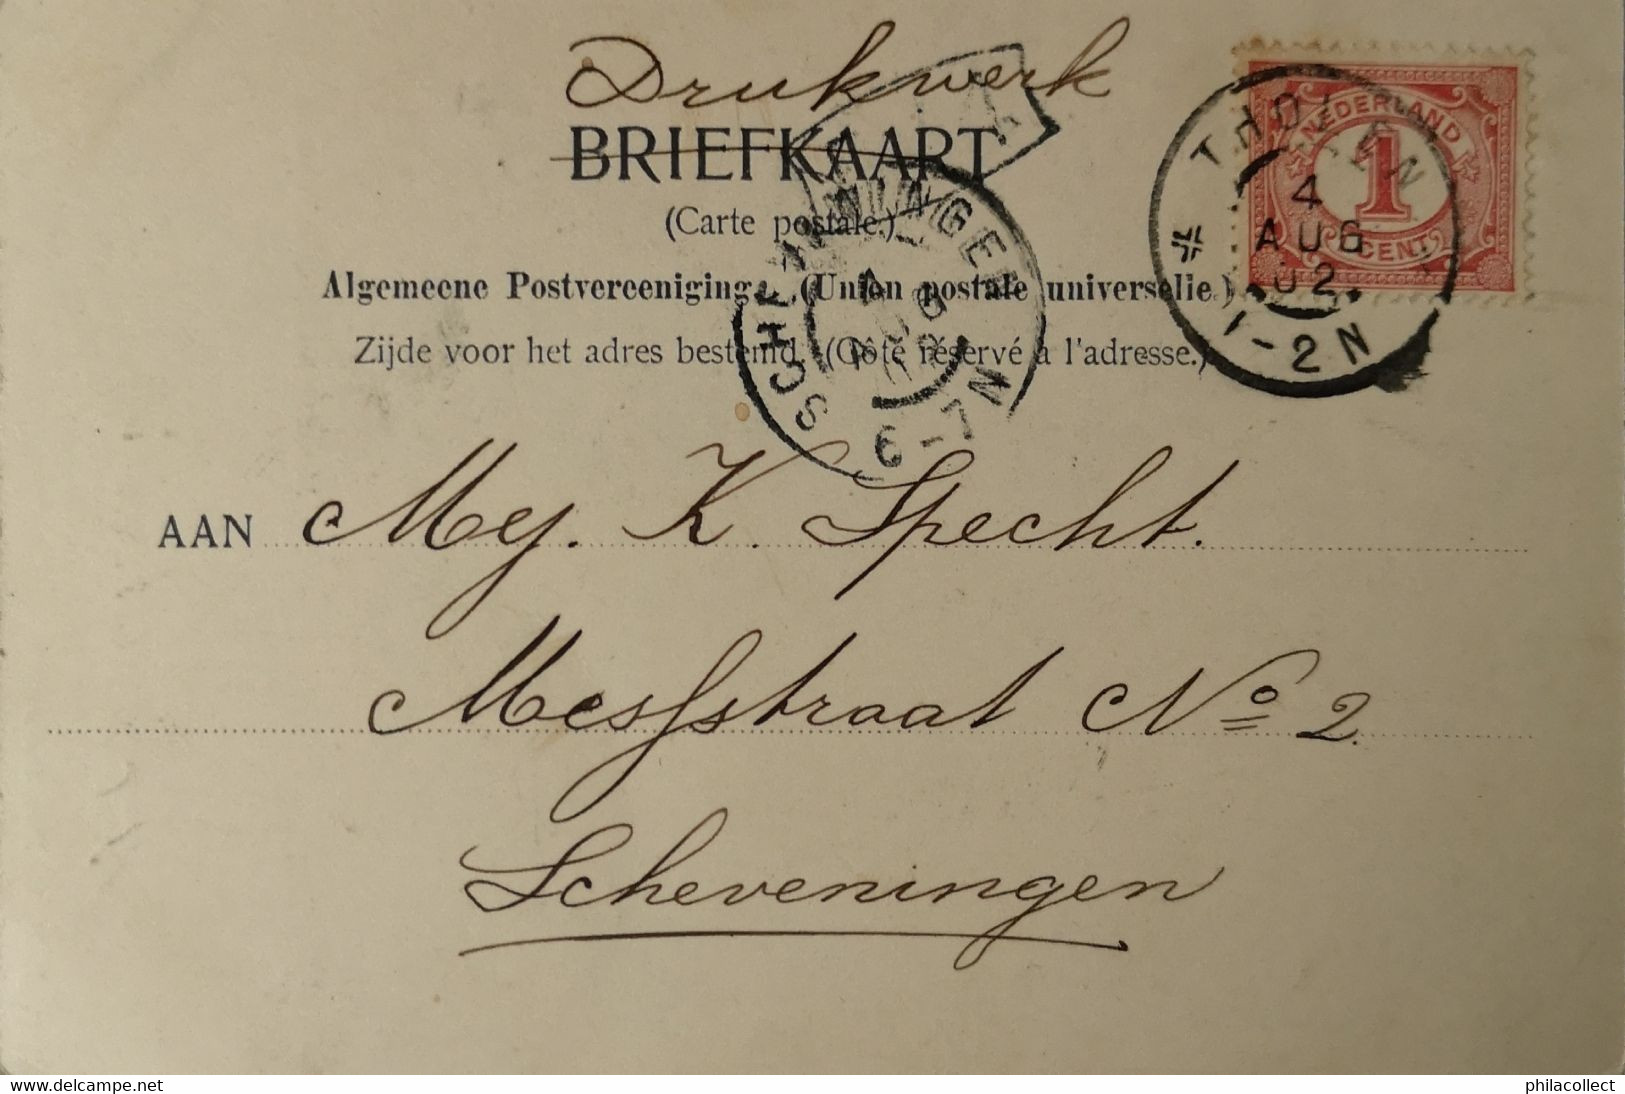 Drukwerk
BRIEFKAART
(Carte postale.)
Algemeene Postvereeniging. (Union postale universelle.)
Zijde voor het adres bestemd. (Côté réservé à l'adresse.)
NEDERLAND
1
CENT
THOLEN
4
AUG
02
1-2N
SCHEVENINGEN
4
AUG
02
6-7N
AAN Mej. K. Specht.
Messstraat No 2.
Scheveningen
www.delcampe.net
philacollect